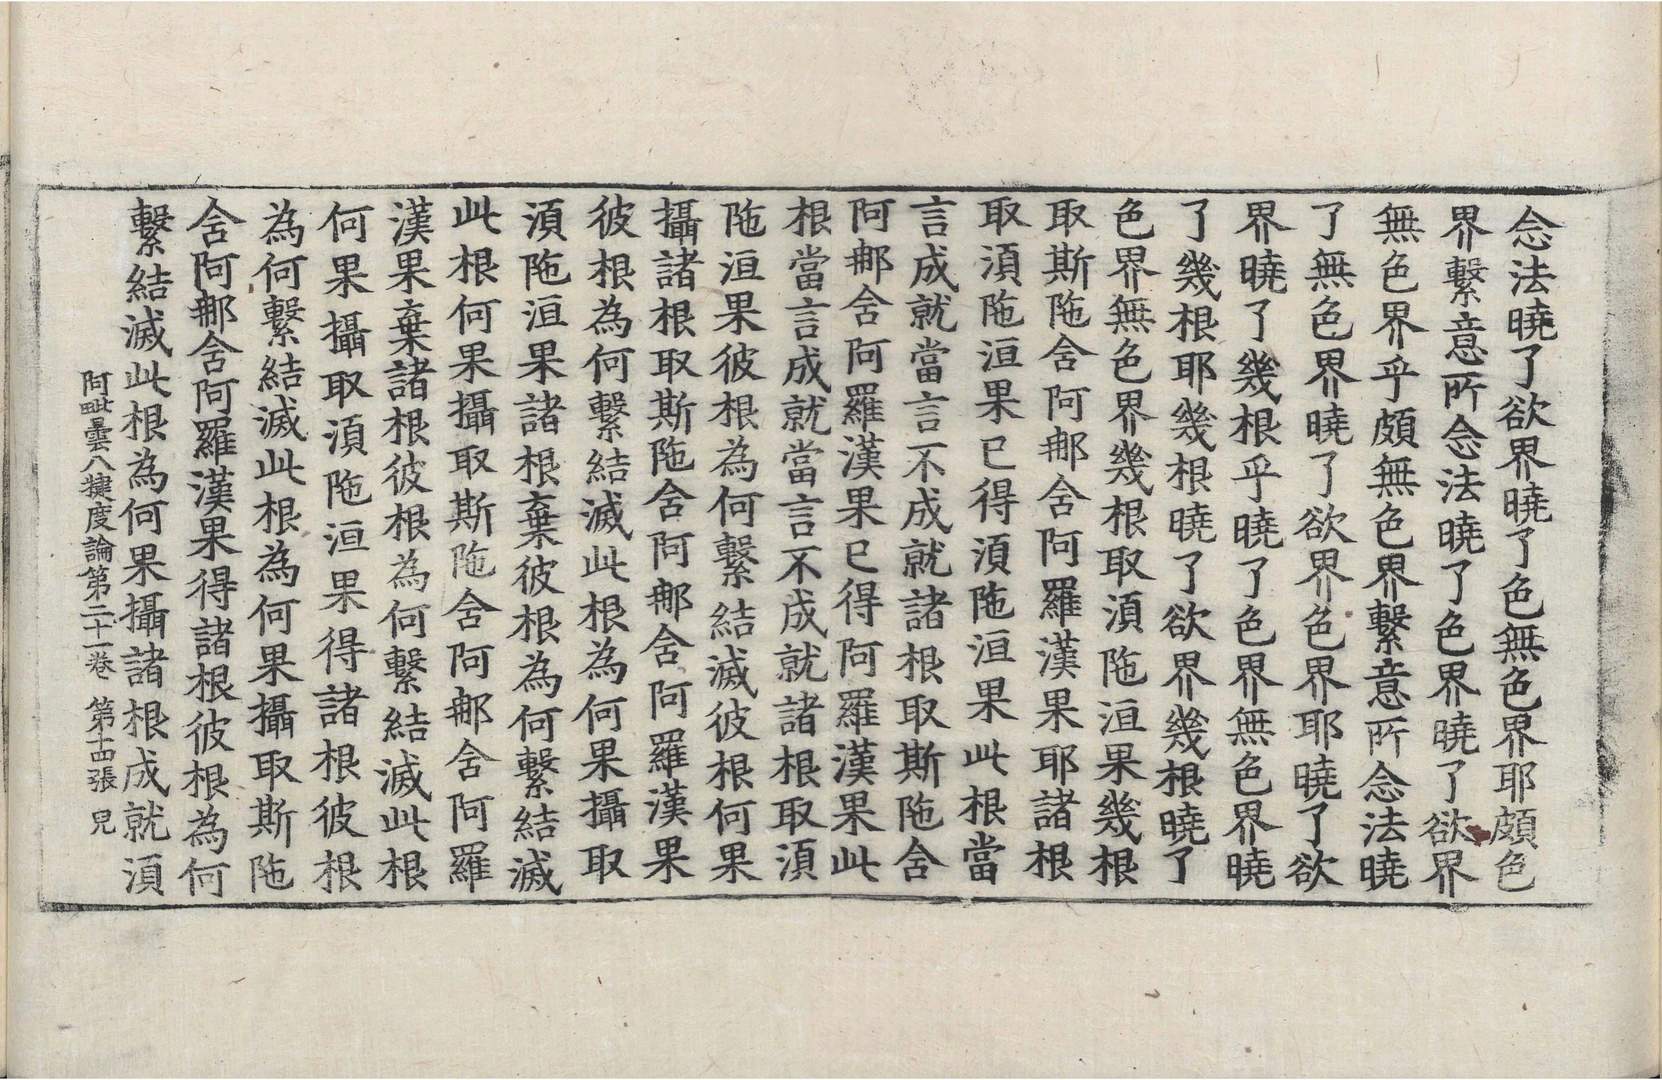 念法曉了欲界曉了色無色界耶頗色
界繫意所念法曉了色界曉了欲界
無色界乎頗無色界繫意所念法曉
了無色界曉了欲界色界耶曉了欲
界曉了幾根乎曉了色界無色界曉
了幾根耶幾根曉了欲界幾根曉了
色界無色界幾根取湏陁洹果幾根
取斯陁舍阿那舍阿羅漢果耶諸根
取湏陁洹果已得湏陁洹果此根當
言成就當言不成就諸根取斯陁舍
阿那舍阿羅漢果已得阿羅漢果此
根當言成就當言不成就諸根取湏
陁洹果彼根為何繫結滅彼根何果
攝諸根取斯陁舍阿那舍阿羅漢果
彼根為何繫結滅此根為何果攝取
湏陁洹果諸根棄彼根為何繫結滅
此根何果攝取斯陁舍阿那舍阿羅
漢果棄諸根彼根為何繫結滅此根
何果攝取湏陁洹果得諸根彼根
為何繫結滅此根為何果攝取斯陁
舍阿那舍阿羅漢果得諸根彼根為何
繫結滅此根為何果攝諸根成就湏
阿毗曇八揵度論第二十一卷 第十四張 皃